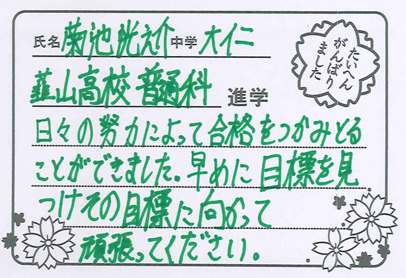 氏名 菊池 晄之介 中学 大仁
たいへん
がんばり
ました
韮山高校 普通科 進学
日々の努力によって合格をつかみとる
ことができました。早めに目標を見
つけその目標に向かって
頑張ってください。